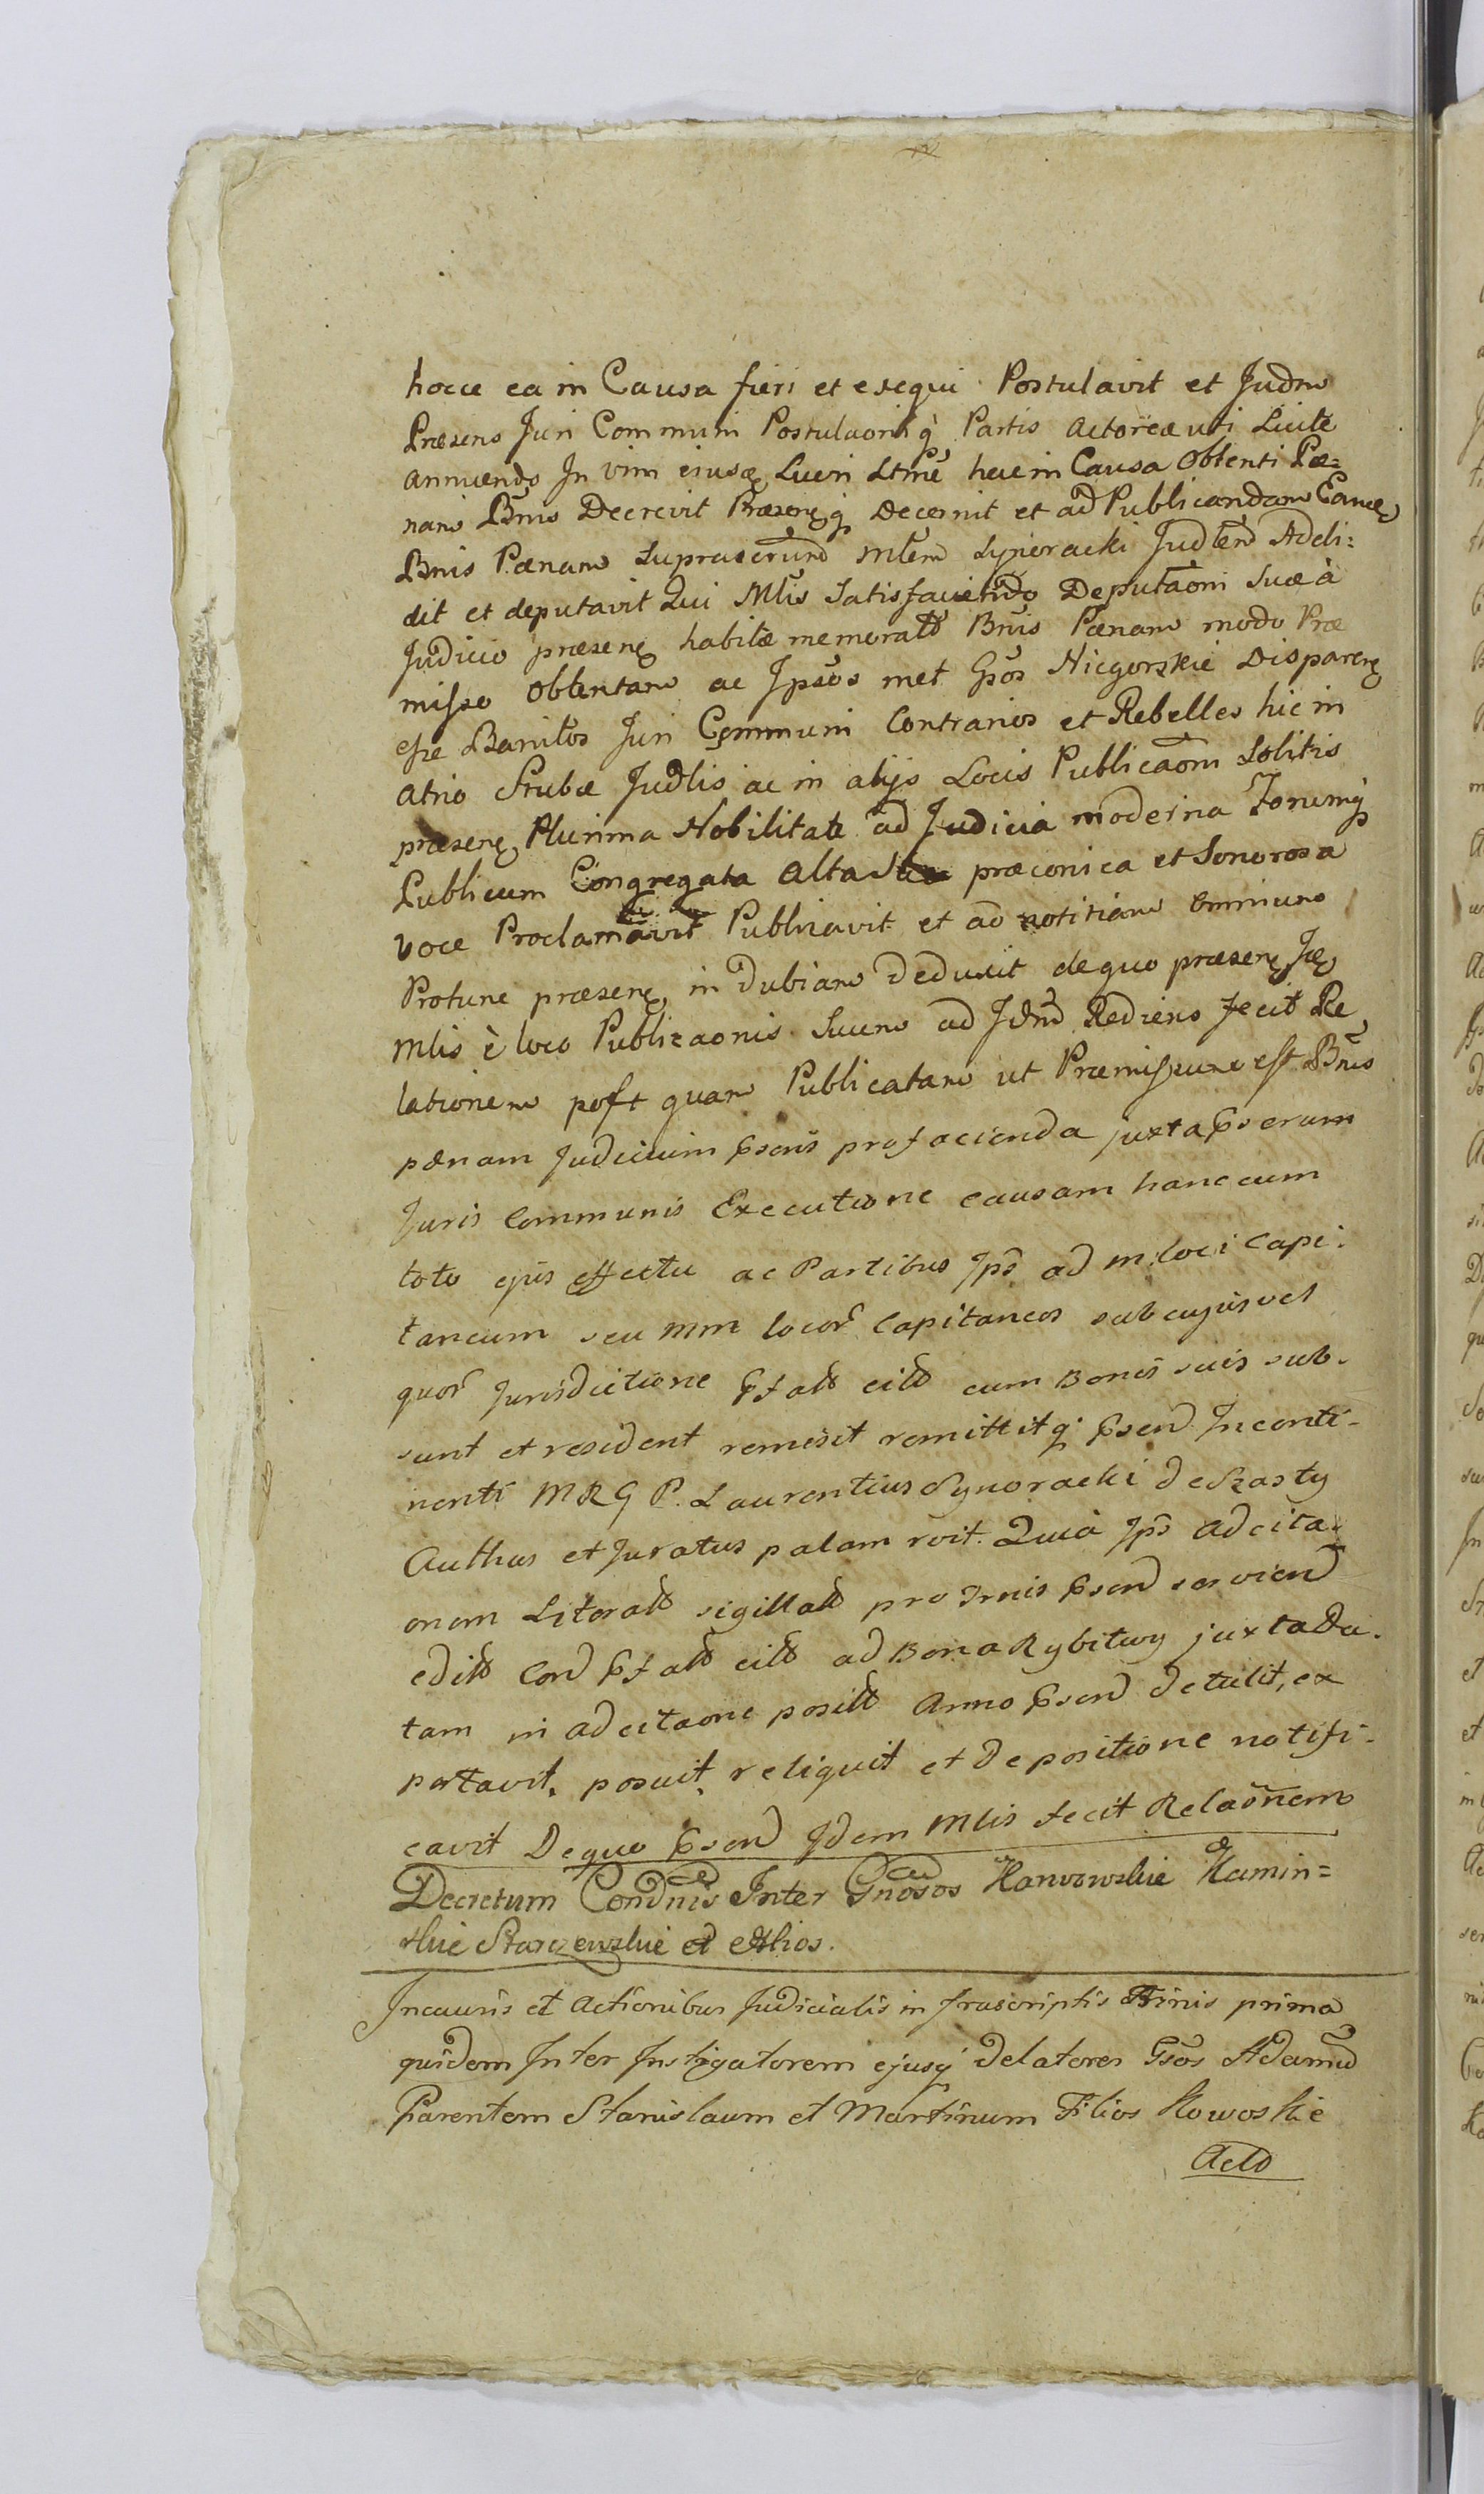 hocce ea in Causa fieri et exequi Postulavit et Judm
Præsens Juri Communi Postulaoniq Partis Actoreæ uti Licite
annuendo In vim eiusd Lucri Stme hac in Causa Obtenti Pæ=
nam Bnis Decrevit Præsensq Decernit et ad Publicandam Eand
Bnis Pænam suprascrum Mlem Synoracki Judlem Addi=
dit et deputavit Qui Mlis Satisfaciendo Deputaoni Suæ à
Judicio præsen habitæ memorat Bnis Pænam modo Præ
misso obtentam ac Ipsos met Gsos Niegorskie Disparen
esse Banitos Juri Communi Contrarios et Rebelles hic in
atrio Stubæ Judlis ac in alijs Locis Publicaom Solitis
præsen Plurima Nobilitate ad Judicia moderna Forumq
Publicum Congregata Alta præconica et Sonorosa
voce Proclamavit Publicavit et ad notitiam omnium
Protunc præsen in dubiam deduxit de quo præsen
Mlis è loco Publicaonis Suens ad Jdm Rediens fecit Re
lationem post quam Publicatam ut Præmissum est Bnis
pænam Judicium Psens pro facienda juxta Psserum
Juris Communis Executione causam hanc cum
toto ejus effectu ac Partibus Jps ad m loci Capi-
taneum seu mm locor Capitaneos sub cujusvel
quor Jurisdictione Pfatt citt cum Bonis suis sub-
sunt et resident remisit remittitq Psend Inconti-
nenti MRGP. Laurentius Synoracki de Szasty
Authus et Juratus palam roit. Quia Jps adcita-
onem Literatt sigillatt pro Trmis Psend serviend
editt Cord Pfatt citt ad Bona Rybitwy juxta Da-
tam in adcitaone positt Anno Psend detulit, ex
portavit, posuit, reliquit et de positione notifi-
cavit De quo Psend Jdem Mlis fecit Relaonem
Decretum Condnis Inter Gnosos Karwowskie Kamin=
skie Starzewskie et Alios.
In causis et Actionibus Judicialis infrascriptis Trmis prima
quidem Inter Instigatorem ejusq delatores Gsos Adamu
Parentem Stanislaum et Martinum Filios
Actt